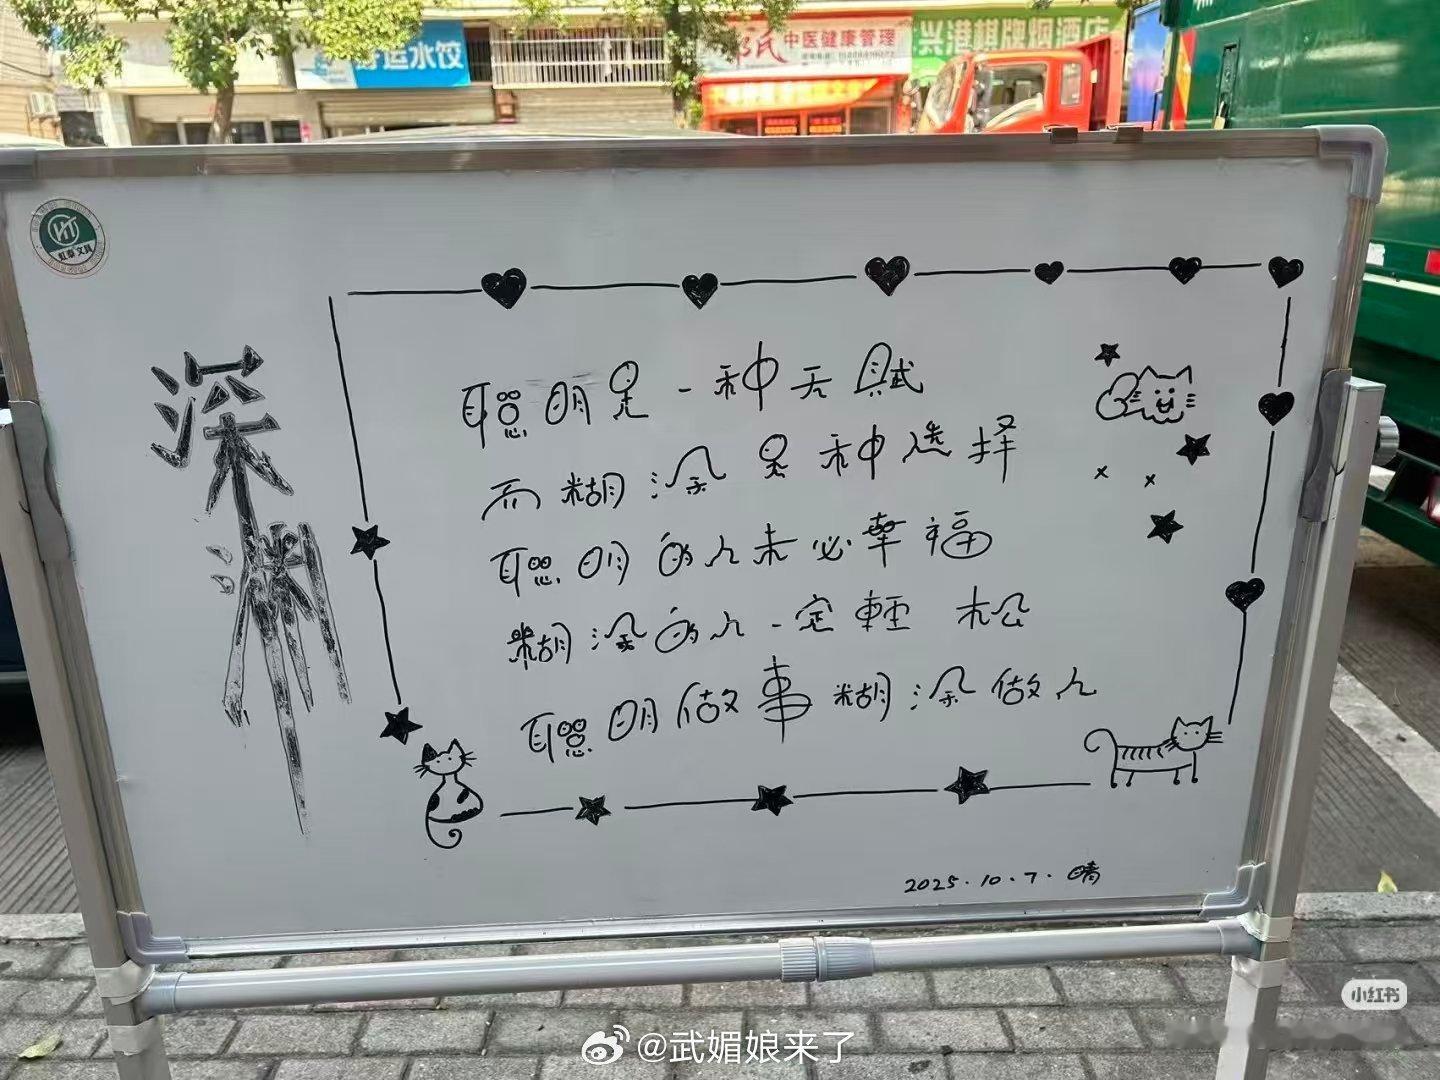 水饺
中医健康管理
兴港棋牌烟酒店
HT
虹泰文具
深渊
聪明是一种天赋
而糊涂是种选择
聪明的人未必幸福
糊涂的人一定輕松
聪明做事糊涂做人
2025.10.7.晴
小红书
@武媚娘来了